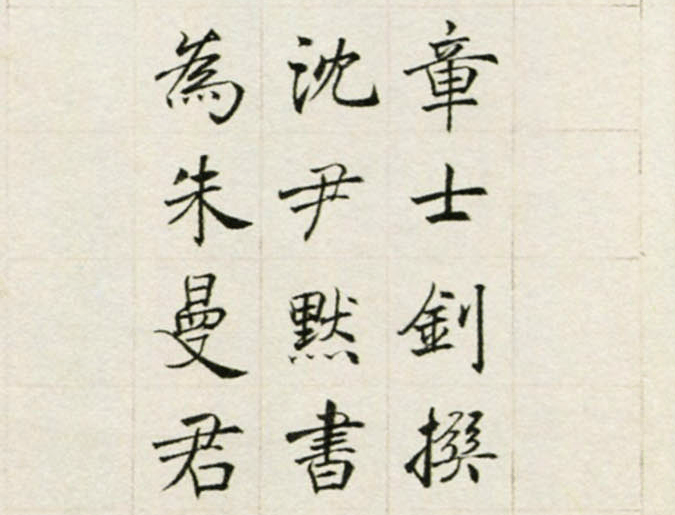 章士釗撰
沈尹默書
為朱曼君